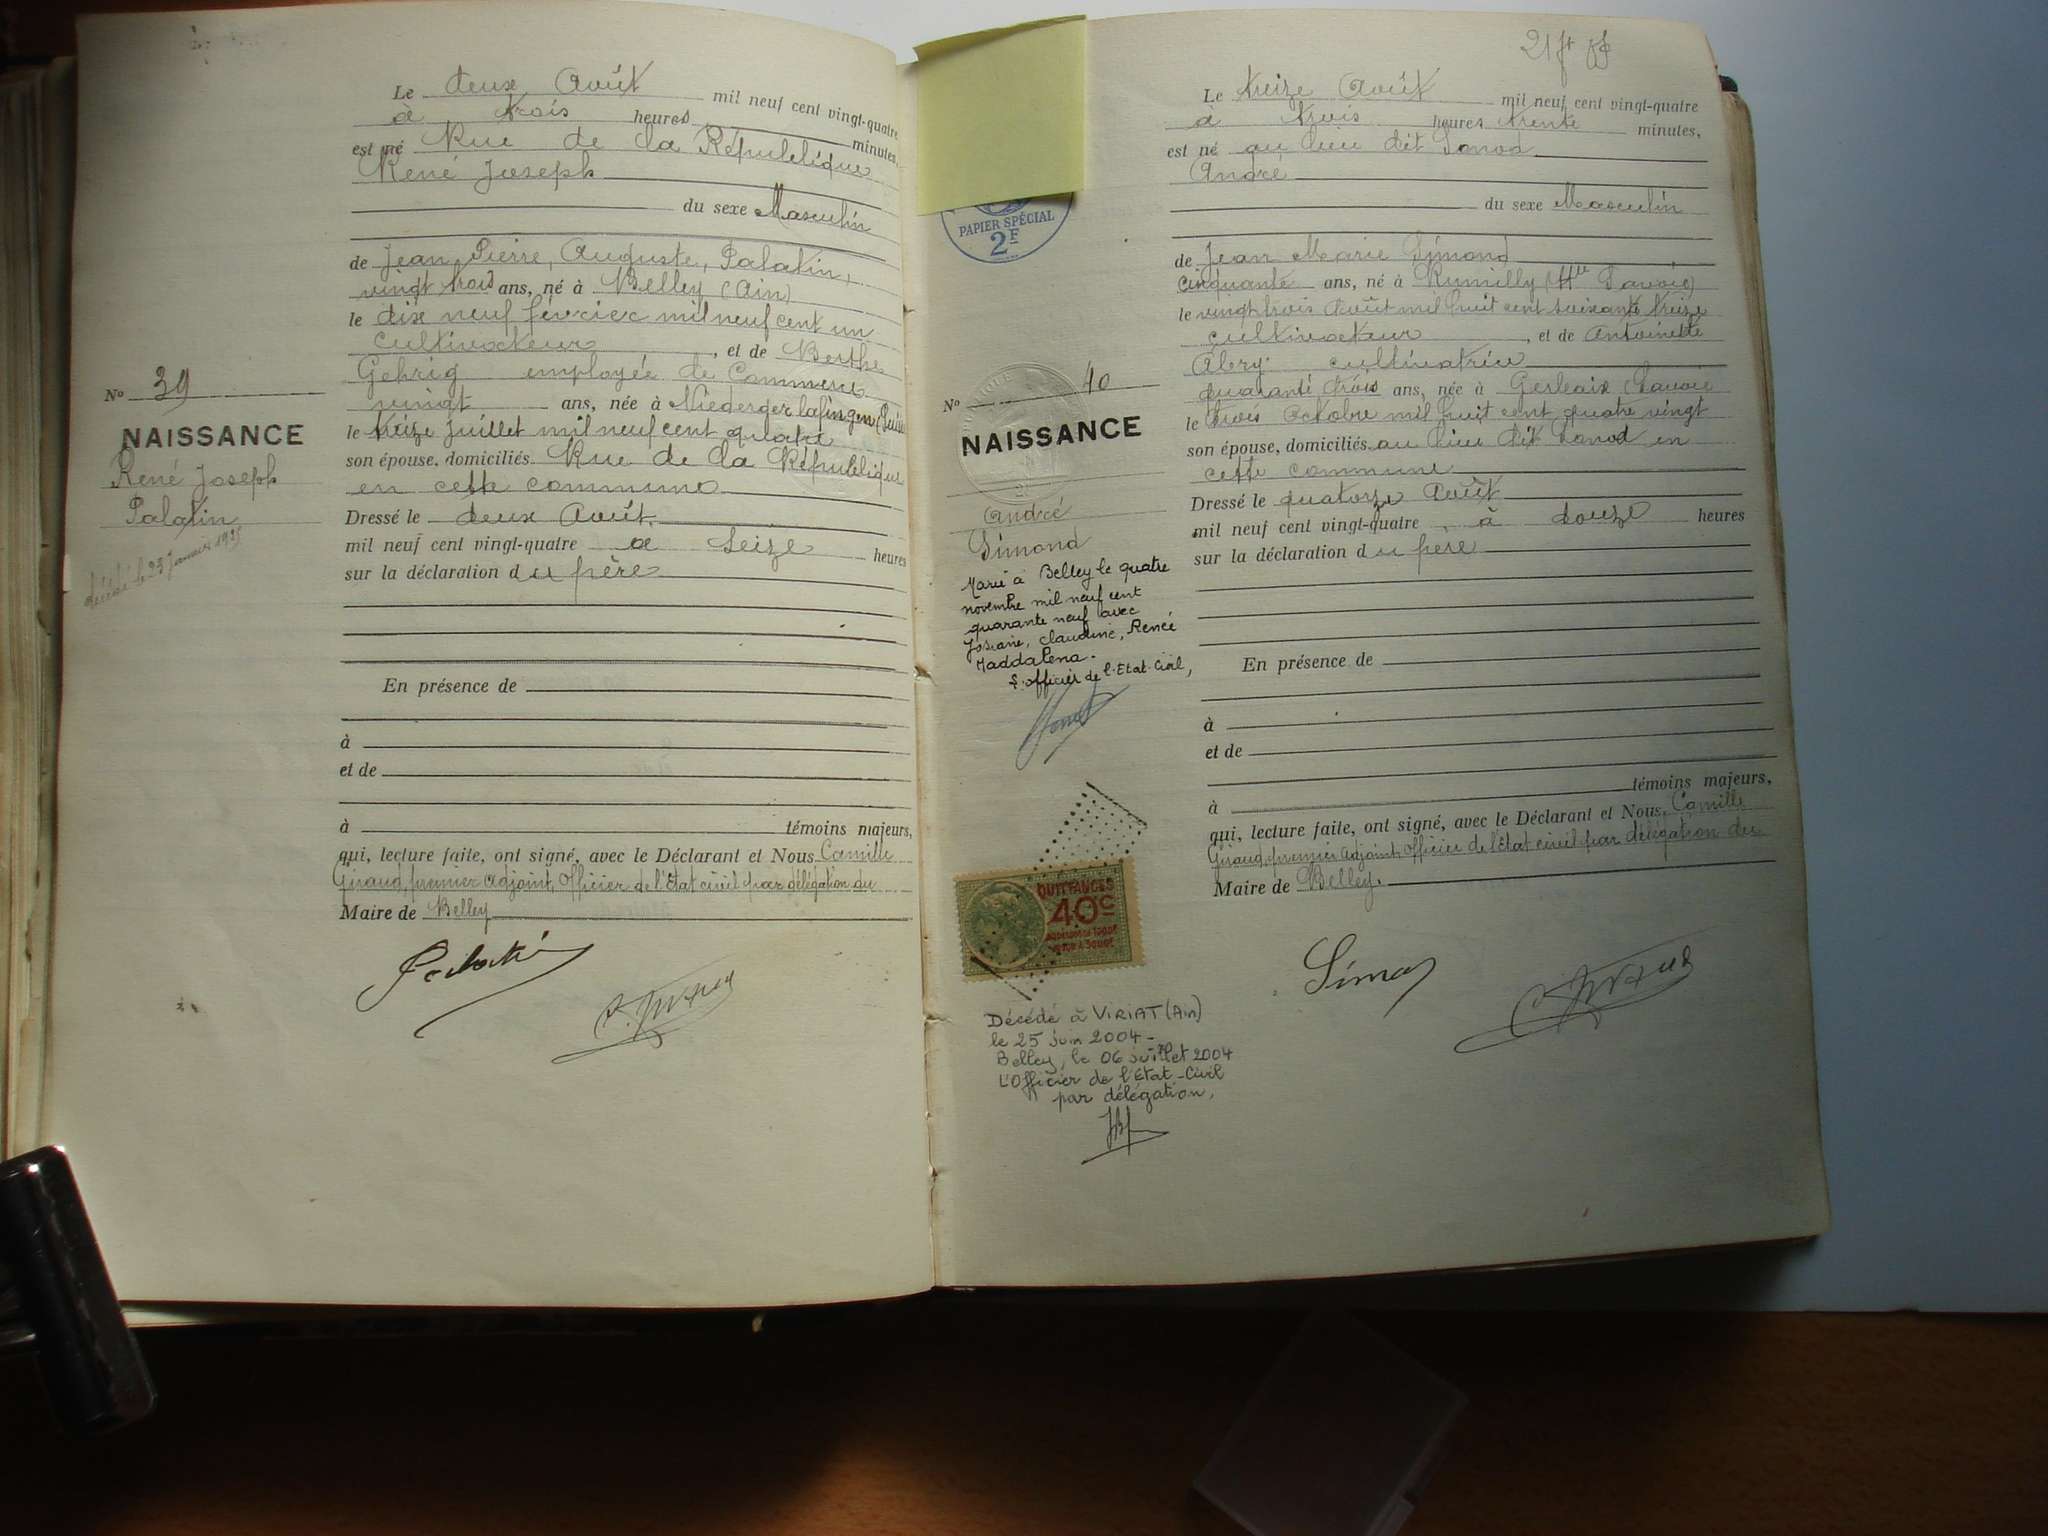 Le deux Août mil neuf cent vingt-quatre
à trois heures minutes,
est né Rue de la République
René Joseph
du sexe Masculin
de Jean Pierre, Auguste, Palatin,
vingt trois ans, né à Belley (Ain)
le dix neuf février mil neuf cent un
cultivateur, et de Berthe
Gehrig employée de Commerce
vingt ans, née à
le treize Juillet mil neuf cent quatre
son épouse, domiciliés Rue de la République
en cette commune
Dressé le deux Août
mil neuf cent vingt-quatre à seize heures
sur la déclaration du père
En présence de
à
et de
à témoins majeurs,
qui, lecture faite, ont signé, avec le Déclarant et Nous Camille
Giraud, premier adjoint, Officier de l'Etat civil par délégation du
Maire de Belley
Palatin
C. Giraud
No 39
NAISSANCE
René Joseph
Palatin
décédé le 23 Janvier
PAPIER SPÉCIAL
2F
No 40
NAISSANCE
André
Simond
Marié à Belley le quatre
novembre mil neuf cent
quarante neuf avec
Josiane, Claudine, Renée
Maddalena.
L'officier de l'Etat-Civil,
QUITTANCES
40c
Décédé à VIRIAT (Ain)
le 25 juin 2004 -
Belley, le 06 juillet 2004
L'Officier de l'Etat-Civil
par délégation,
Le treize Août mil neuf cent vingt-quatre
à trois heures trente minutes,
est né au lieu dit
André
du sexe Masculin
de Jean Marie Simond
cinquante ans, né à Rumilly (Hte Savoie)
le vingt trois Août mil huit cent soixante treize
cultivateur, et de Antoinette
Abry cultivatrice
quarante trois ans, née à Gerbaix (Savoie
le trois Octobre mil huit cent quatre vingt
son épouse, domiciliés au lieu dit en
cette commune
Dressé le quatorze Août
mil neuf cent vingt-quatre, à douze heures
sur la déclaration du père
En présence de
à
et de
à témoins majeurs,
qui, lecture faite, ont signé, avec le Déclarant et Nous, Camille
Giraud, premier adjoint, Officier de l'Etat civil par délégation du
Maire de Belley.
Simon
C. Giraud